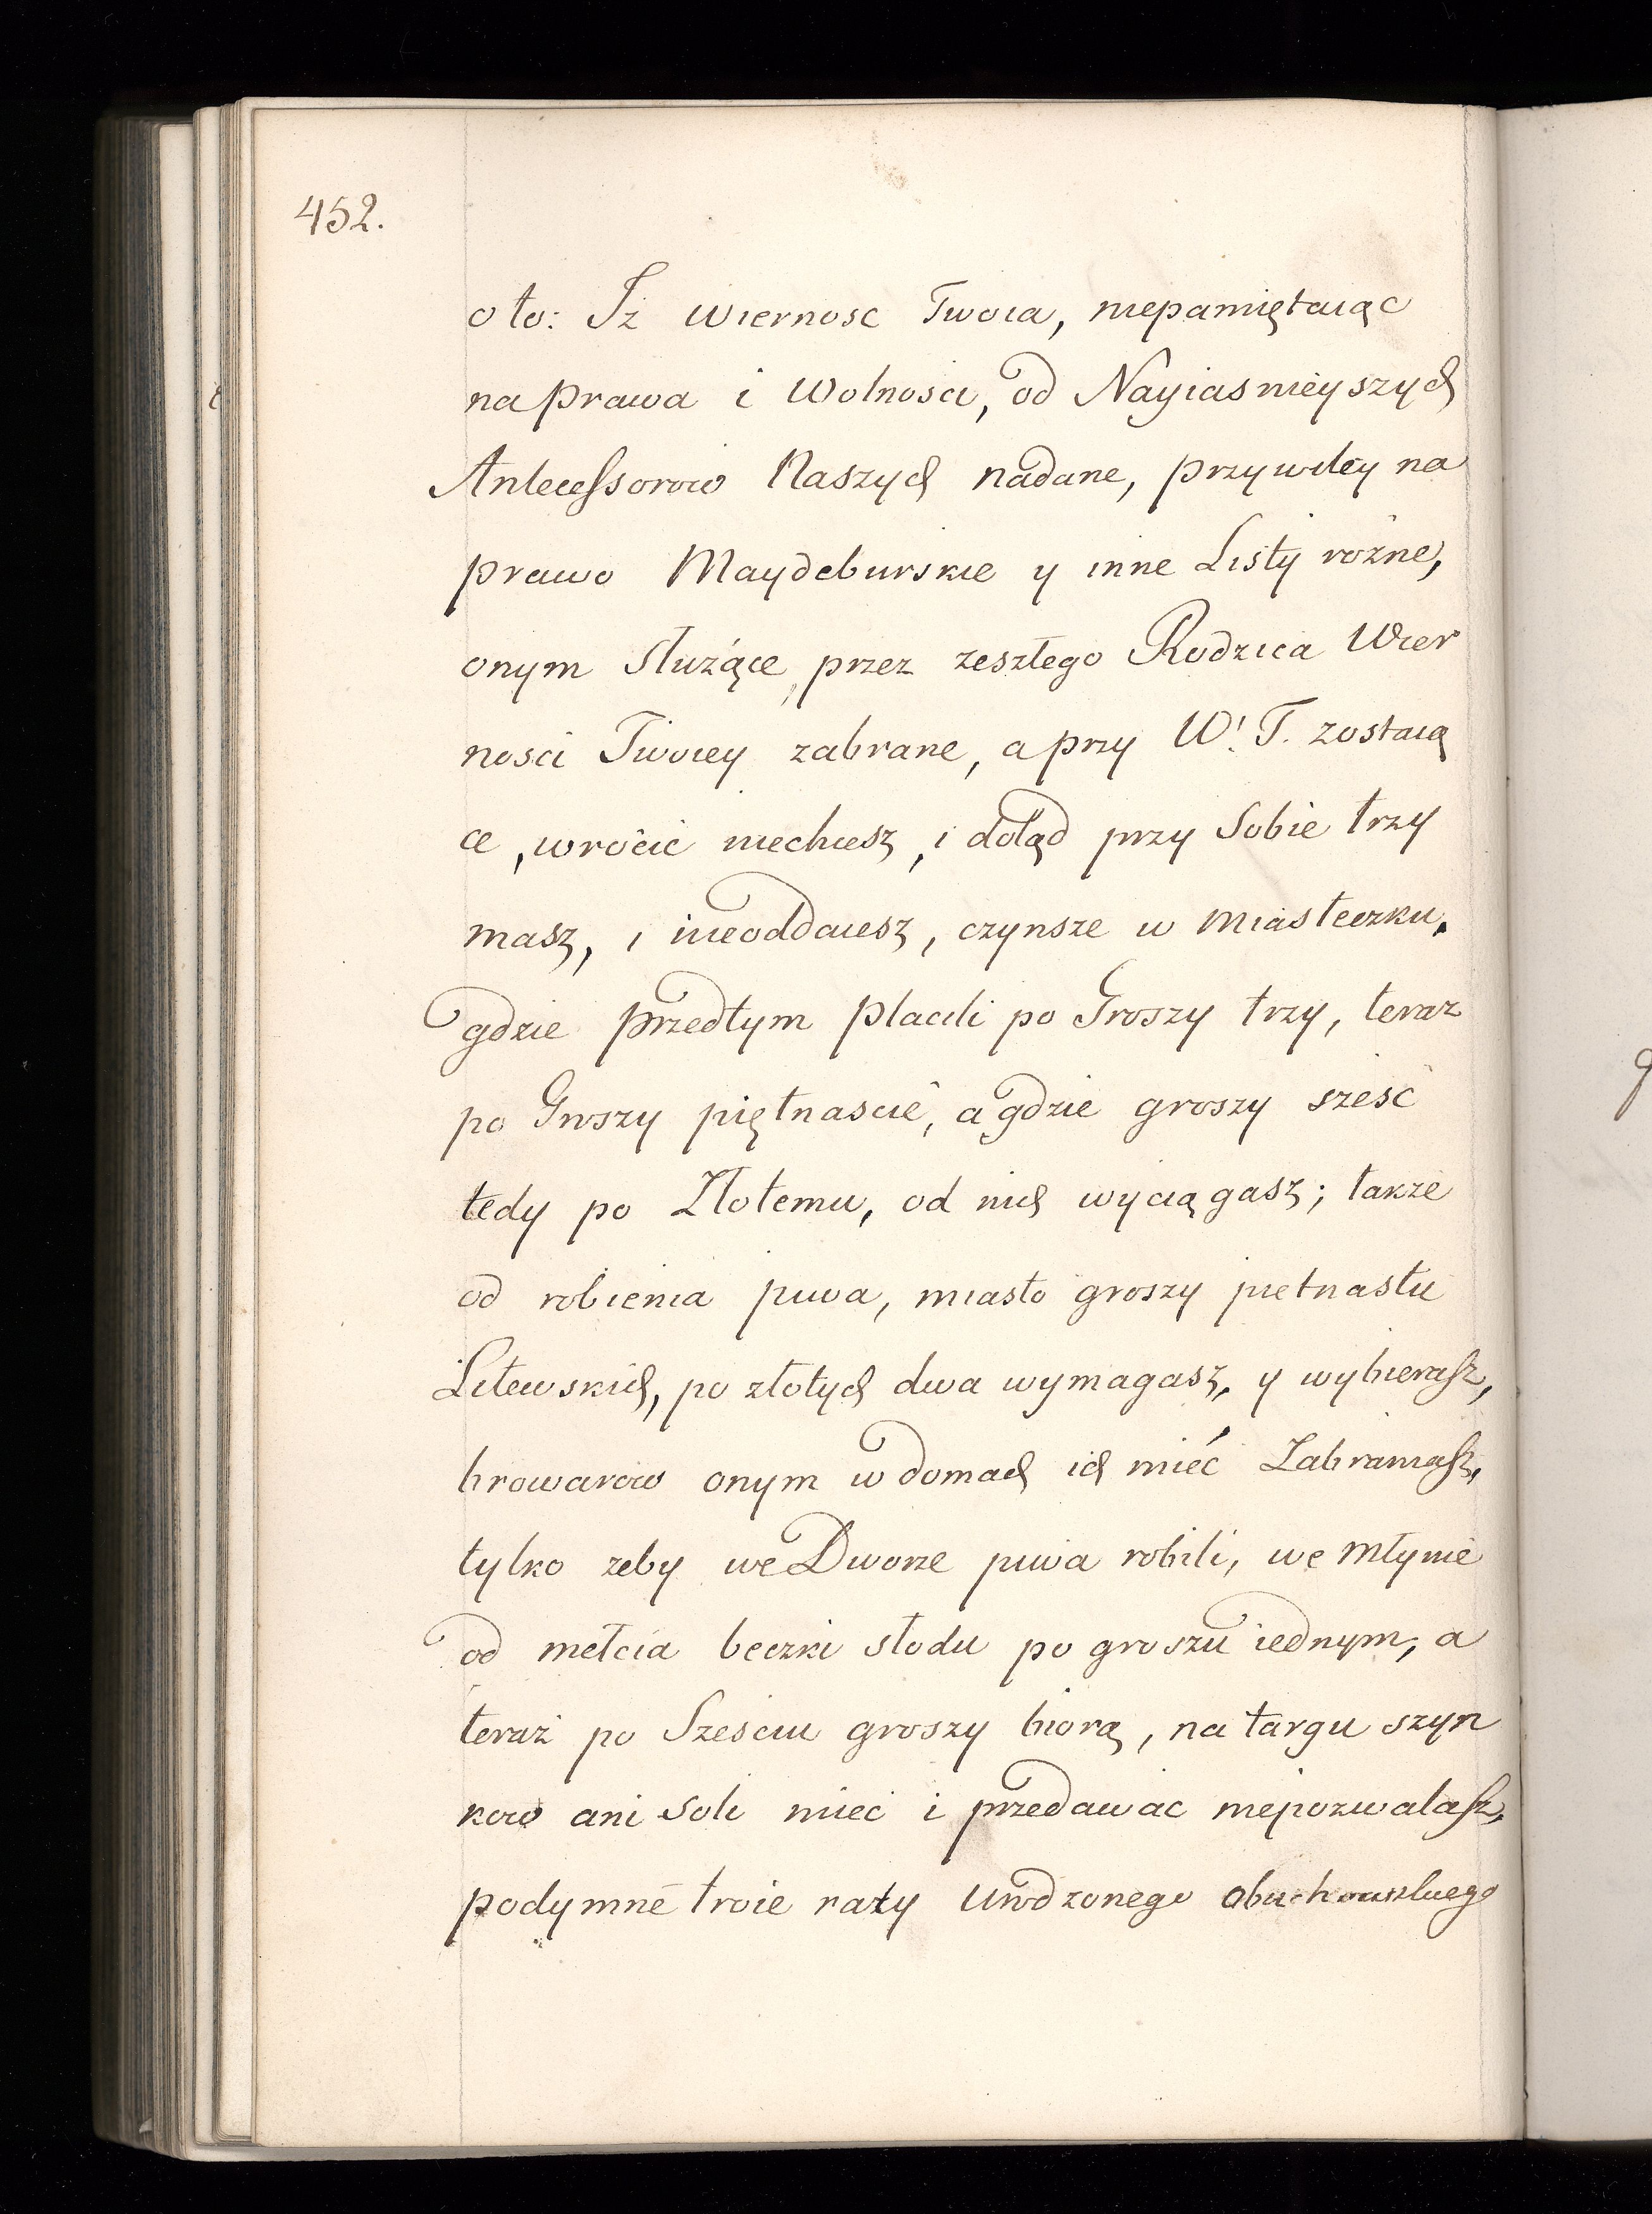 452.
o to: Iż Wiernosc Twoia, niepamiętaiąc
na prawa i Wolnosci, od Nayiasnieyszych
Antecessorow Naszych nadane, przywiley na
prawo Maydeburskie y inne Listy rożne,
onym służące, przez zeszłego Rodzica Wier
nosci Twoiey zabrane, a przy W. T. zostaią
ce, wrócić niechcesz, i dotąd przy Sobie trzy
masz, i nieoddaiesz, czynsze w Miasteczku,
gdzie przedtym płacili po Groszy trzy, teraz
po Groszy piętnascie, a gdzie groszy szesć
tedy po Złotemu, od nich wyciągasz; także
od robienia piwa, miasto groszy pietnastu
Litewskich, po złotych dwa wymagasz, y wybierasz,
browarow onym w domach ich mieć Zabraniasz,
tylko zeby we Dworze piwa robili, we Młynie
od mełcia beczki słodu po groszu iednym, a
teraz po Szesciu groszy biorą, na targu szyn
kow ani Soli mieć i przedawac niepozwalasz,
podymne troie raty Urodzonego Obuchowskiego